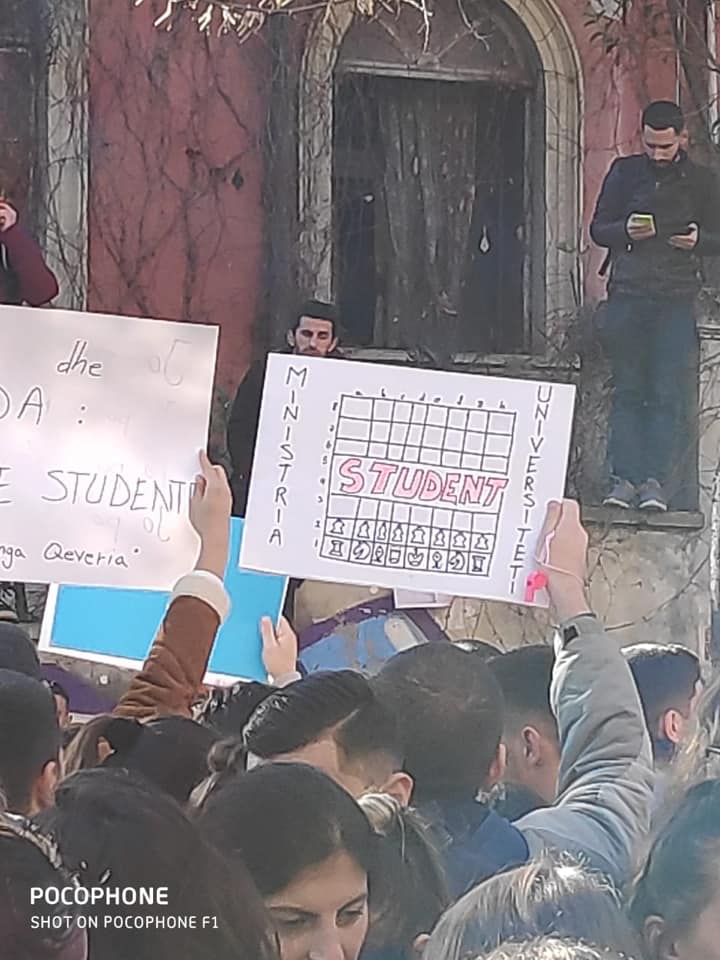 dhe
DA :
E STUDENT
nga Qeveria"
MINISTRIA
a b c d e f g h
8
7
6
5
4
3
2
1
STUDENT
UNIVERSITETI
POCOPHONE
SHOT ON POCOPHONE F1